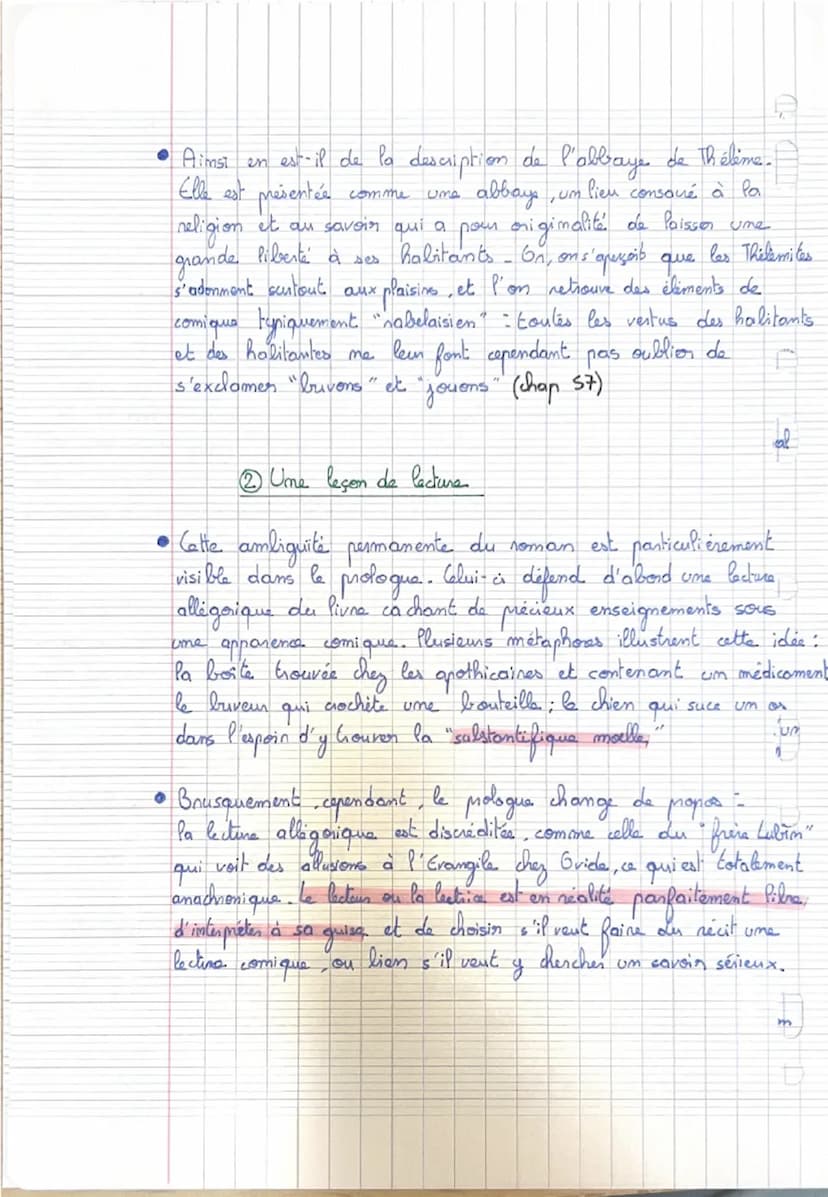 • Ainsi en est-il de la description de l'abbaye de Thélème.
Elle est présentée comme une abbaye, un lieu consacré à la
religion et au savoir qui a pour originalité de laisser une
grande liberté à ses habitants. Or, on s'aperçoit que les Thélémites
s'adonnent surtout aux plaisirs, et l'on retrouve des éléments de
comique typiquement "rabelaisien" : toutes les vertus des habitants
et des habitantes ne leur font cependant pas oublier de
s'exclamer "buvons" et "jouons" (chap 57)
② Une leçon de lecture
• Cette ambiguïté permanente du roman est particulièrement
visible dans le prologue. Celui-ci défend d'abord une lecture
allégorique du livre cachant de précieux enseignements sous
une apparence comique. Plusieurs métaphores illustrent cette idée :
la boîte trouvée chez les apothicaires et contenant un médicament
le buveur qui crochète une bouteille ; le chien qui suce un os
dans l'espoir d'y trouver la "substantifique moelle,"
• Brusquement, cependant, le prologue change de propos :
la lecture allégorique est discréditée, comme celle du "frère Lubin"
qui voit des allusions à l'Evangile chez Ovide, ce qui est totalement
anachronique. Le lecteur ou la lectrice est en réalité parfaitement libre,
d'interpréter à sa guise, et de choisir s'il veut faire du récit une
lecture comique, ou bien s'il veut y chercher un savoir sérieux.